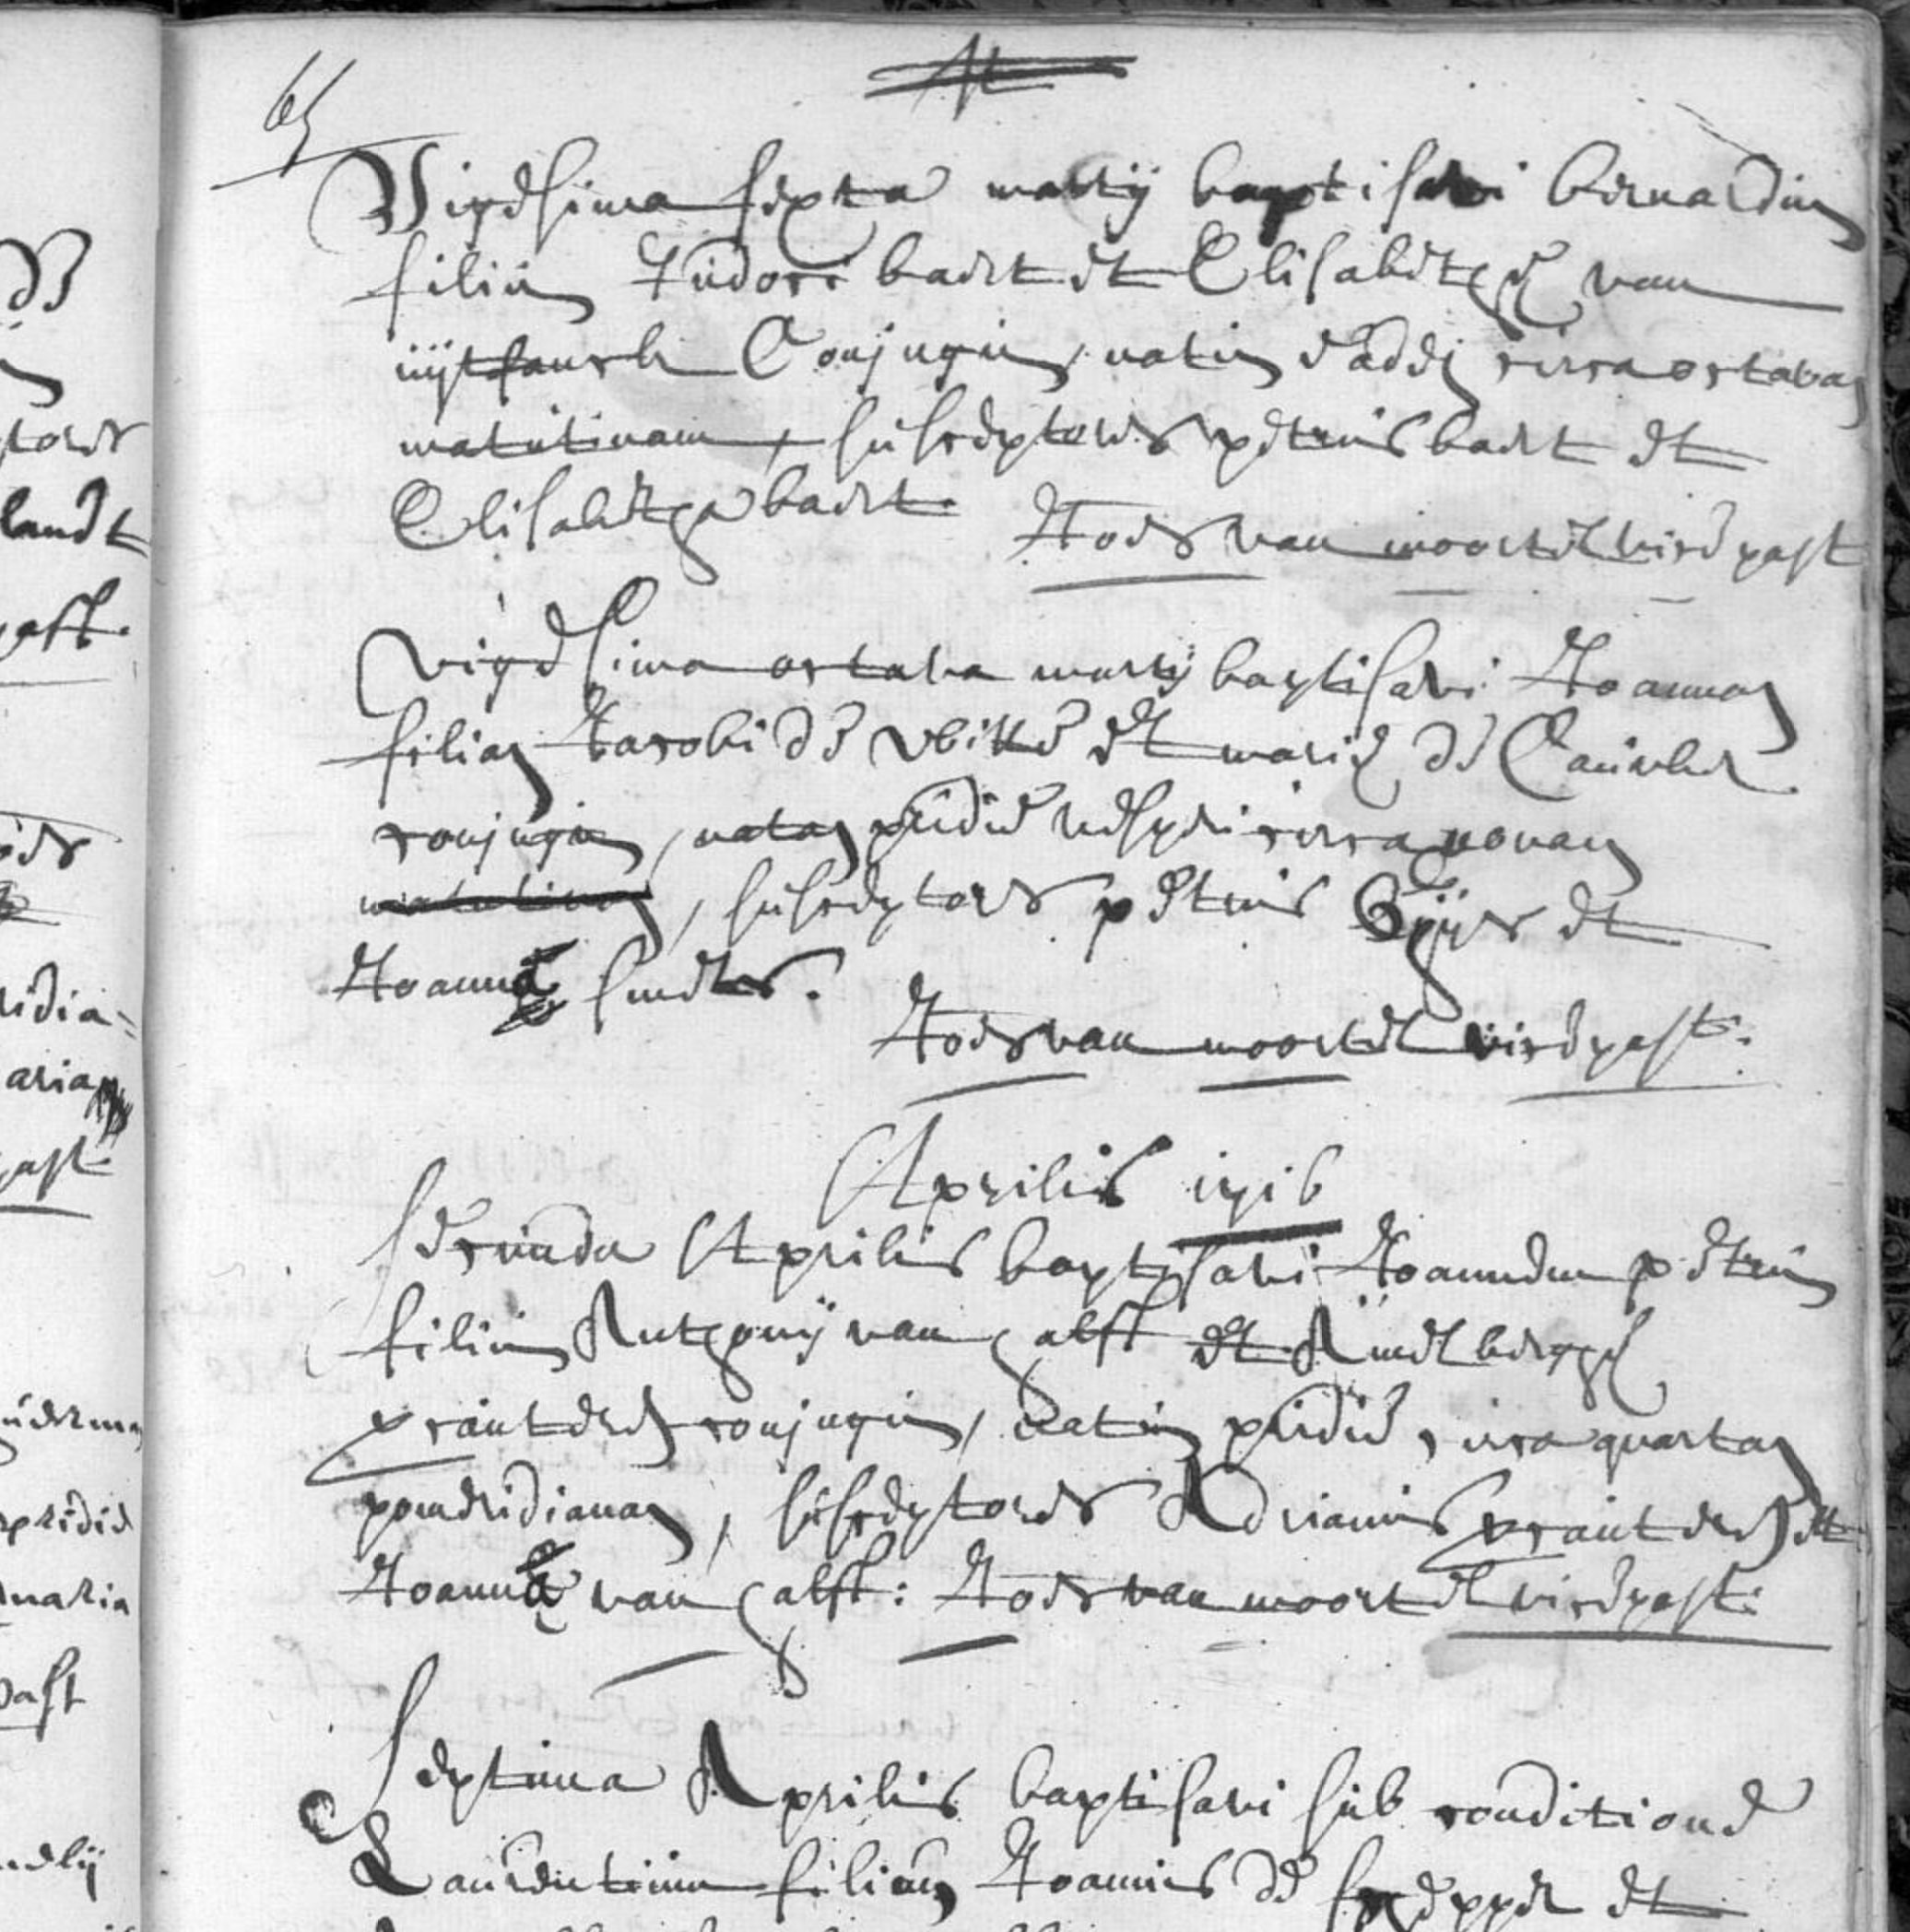 65
Vigesima sexta martij baptisavi bernardum
filium Judoci baert et Elisabethae van
uijtfanck Conjugum, natum eadem circa octavam
matutinam, susceptores petrus baert et
Elisabetha baert
Joes van moortel vice past
vigesima octava martij baptisavi Joannam
filiam Jacobi de witte et mariae de Cauwer
conjugum, natam pridie vesperi circa nonam
matutinam, susceptores petrus et
Joanna smets.
Joes van moortel vice past:
Aprilis 1716
secunda Aprilis baptisavi Joannem petrum
filium Anthonij van halst et Amelberghae
praut conjugum, natum pridie circa quartam
pomeridianam, susceptores Adrianus et
Joanna van halst: Joes van moortel vice past:
septima Aprilis baptisavi sub conditione
Laurentium filium Joannis de schepper et